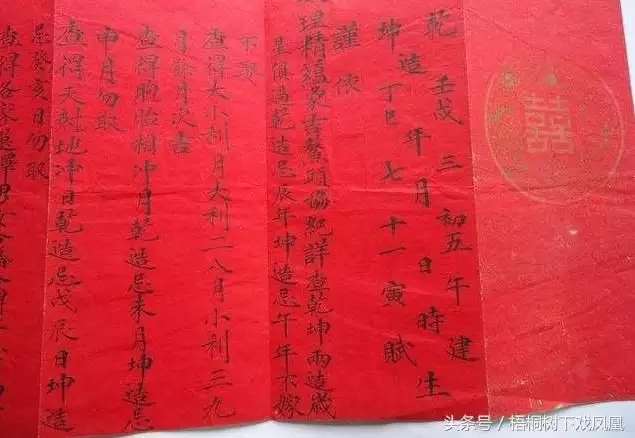 囍
乾 壬戌 三 初五 午 建
造 年 月 日 時 生
坤 丁巳 七 十一 寅 賦
謹依
理精蘊象吉鰲頭協紀詳查乾坤兩造歲
星俱過乾造忌辰年坤造忌午年不嫁
不娶
查得大小利月大利二八月小利三九
月餘月次吉
查得胞胎相冲月乾造忌未月坤造忌
申月勿取
查得天尅地冲日乾造忌戊辰日坤造
忌癸亥日勿取
查得各家
头条号／梧桐树下戏凤凰